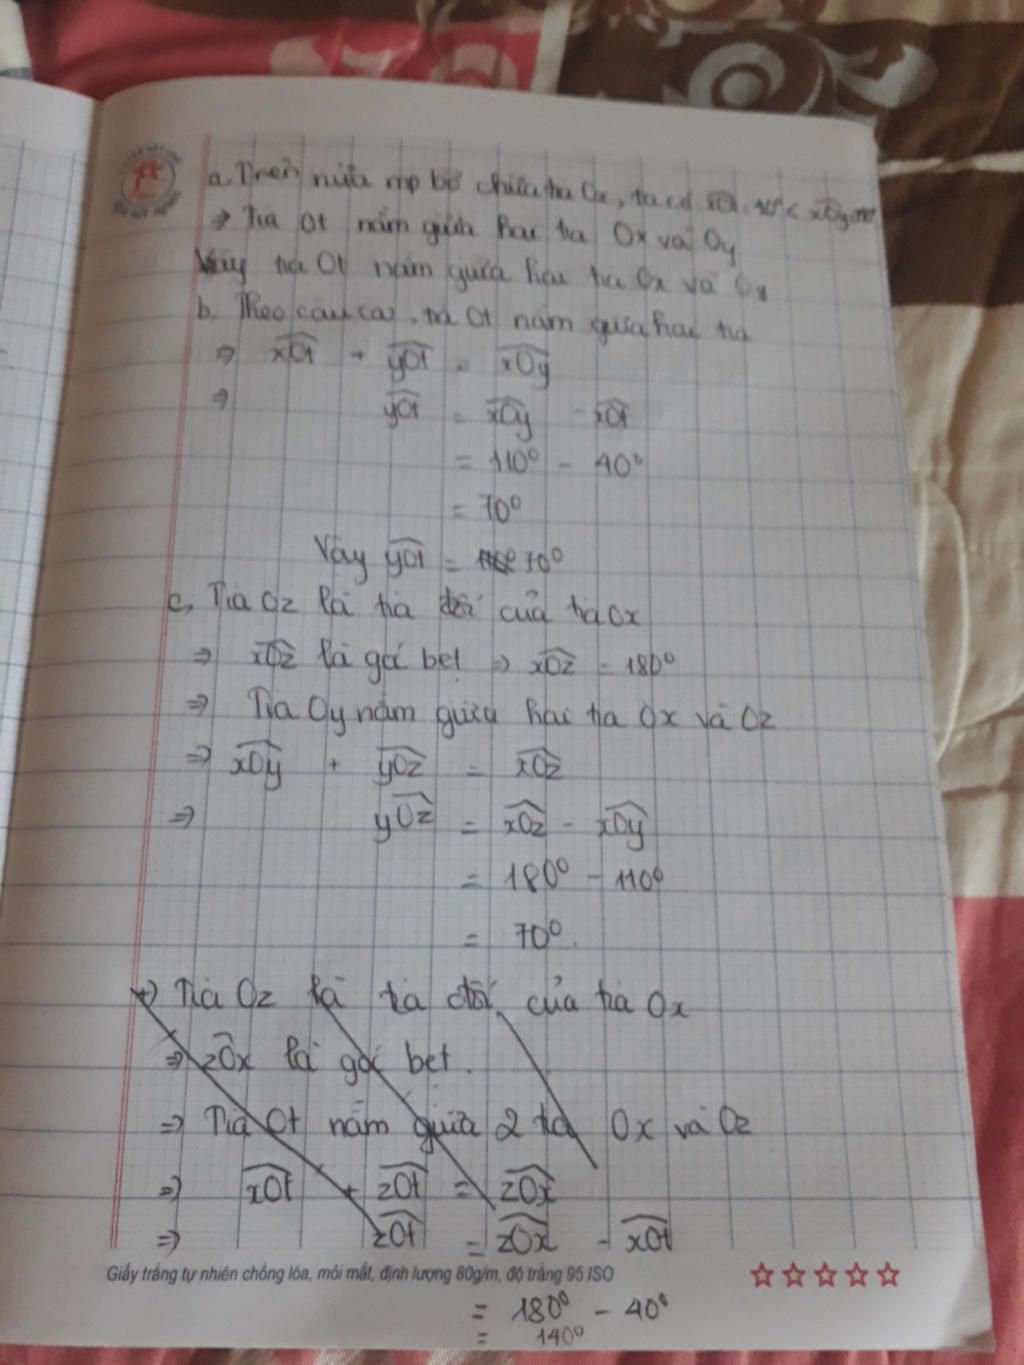 a. Trên nửa mp bờ chứa tia Ox, ta có xOt = 40° < xOy = 110°
⇒ Tia Ot nằm giữa hai tia Ox và Oy
Vậy tia Ot nằm giữa hai tia Ox và Oy
b. Theo câu (a), tia Ot nằm giữa hai tia
⇒ xOt + yOt = xOy
⇒ yOt = xOy - xOt
= 110° - 40°
= 70°
Vậy yOt = 70°
c, Tia Oz là tia đối của tia Ox
⇒ xOz là góc bẹt ⇒ xOz = 180°
⇒ Tia Oy nằm giữa hai tia Ox và Oz
⇒ xOy + yOz = xOz
⇒ yOz = xOz - xOy
= 180° - 110°
= 70°.
+) Tia Oz là tia đối của tia Ox
⇒ zOx là góc bẹt.
⇒ Tia Ot nằm giữa 2 tia Ox và Oz
⇒ xOt + zOt = zOx
⇒ zOt = zOx - xOt
Giấy trắng tự nhiên chống lóa, mỏi mắt, định lượng 80g/m, độ trắng 95 ISO
= 180° - 40°
= 140°